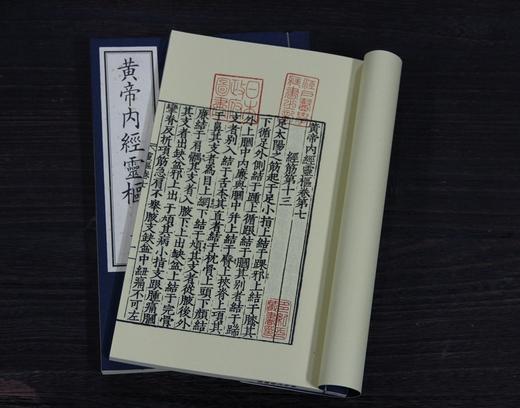 黃帝內經靈樞
日本
政府
圖書
黃帝內經靈樞卷第七
經筋第十三
足太陽之筋起于足小指上結于踝邪上結于膝其
下循足外側結于踵上循跟結于膕其別者結于踹
外上膕中內廉與膕中并上結于臀上挾脊上項其
支者別入結于舌本其直者結于枕骨上頭下顏結
于鼻其支者為目上網下結于頄其支者從腋後外
廉結于肩髃其支者入腋下上出缺盆上結于完骨
其支者出缺盆邪上出于頄其病小指支跟腫痛膕
攣脊反折項筋急肩不舉腋支缺盆中紐痛不可左